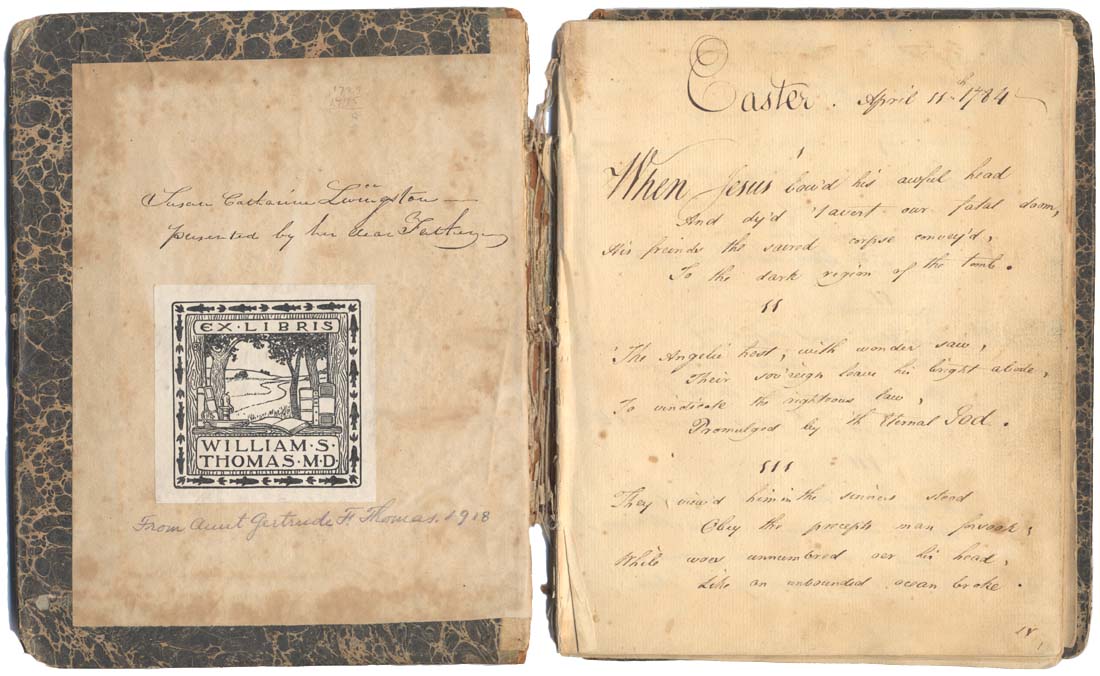 Susan Catharine Livingston —
presented by her dear Father
EX·LIBRIS
WILLIAM·S·
THOMAS·M·D·
From Aunt Gertrude F. Thomas. 1918
Easter. April 11th 1784
1
When Jesus bow'd his awful head
And dy'd t'avert our fatal doom,
His freinds the sacred corpse convey'd,
To the dark region of the tomb.
11
The Angelic host, with wonder saw,
Their sov'reign leave his bright abode,
To vindicate the righteous law,
Promulged by th' Eternal God.
111
They view'd him in the sinners stead
Obey the precepts man forsook,
While woes unnumbred oer his head,
Like an unbounded ocean broke.